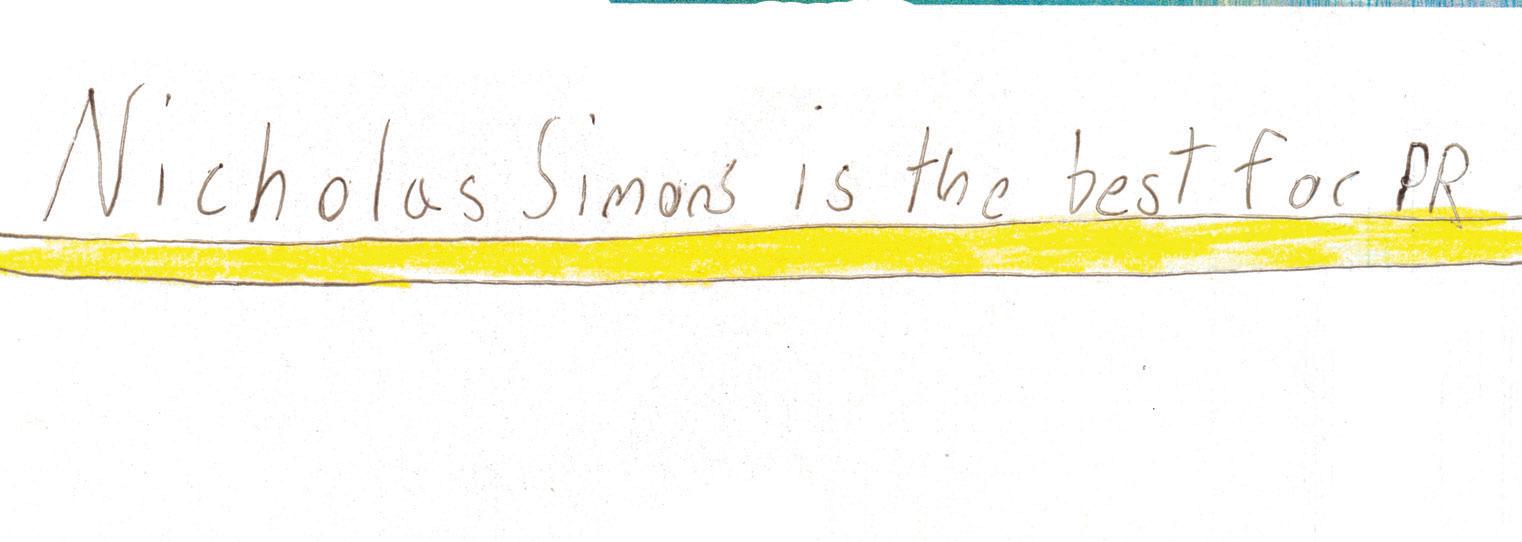 Nicholas Simons is the best for PR